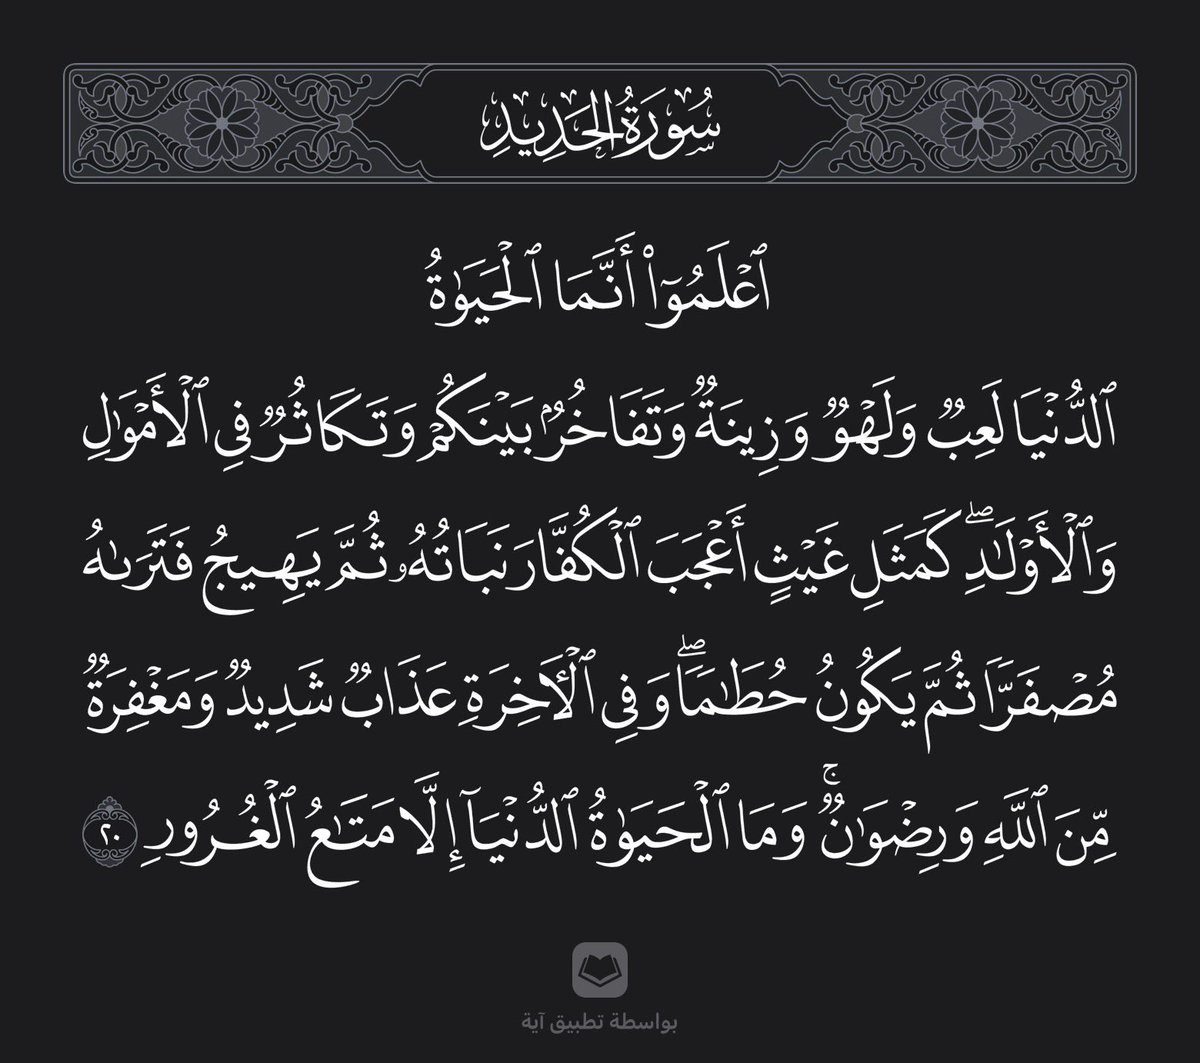 سُورَةُ الحَدِيدِ
ٱعۡلَمُوٓاْ أَنَّمَا ٱلۡحَيَوٰةُ
ٱلدُّنۡيَا لَعِبٞ وَلَهۡوٞ وَزِينَةٞ وَتَفَاخُرُۢ بَيۡنَكُمۡ وَتَكَاثُرٞ فِي ٱلۡأَمۡوَٰلِ
وَٱلۡأَوۡلَٰدِۖ كَمَثَلِ غَيۡثٍ أَعۡجَبَ ٱلۡكُفَّارَ نَبَاتُهُۥ ثُمَّ يَهِيجُ فَتَرَىٰهُ
مُصۡفَرّٗا ثُمَّ يَكُونُ حُطَٰمٗاۖ وَفِي ٱلۡأٓخِرَةِ عَذَابٞ شَدِيدٞ وَمَغۡفِرَةٞ
مِّنَ ٱللَّهِ وَرِضۡوَٰنٞۚ وَمَا ٱلۡحَيَوٰةُ ٱلدُّنۡيَآ إِلَّا مَتَٰعُ ٱلۡغُرُورِ ٢٠
بواسطة تطبيق آية